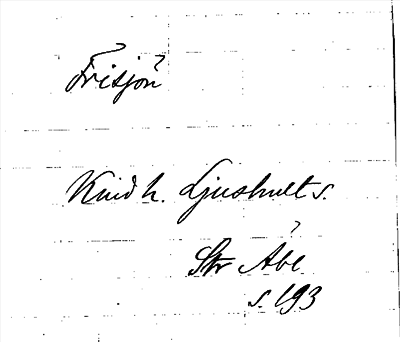 Frisjön
Kind h. Ljushult s.
Str Åbe
s. 193